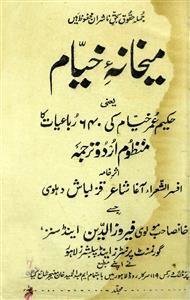 جملہ حقوق بحق ناشران محفوظ ہیں
میخانۂ خیام
یعنی
حکیم عمر خیام کی ۶۴۰ رباعیات کا
منظوم اردو ترجمہ
اثر خامہ
افسر الشعراء آغا شاعر قزلباش دہلوی
جسے
خانصاحب مولوی فیروز الدین اینڈ سنز
گورنمنٹ پرنٹرز پبلشرز لاہور
نے